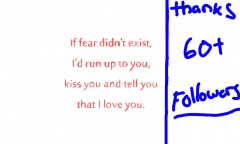 If fear didn't exist,
I'd run up to you,
kiss you and tell you
that I love you.
thanks
60+
Followers